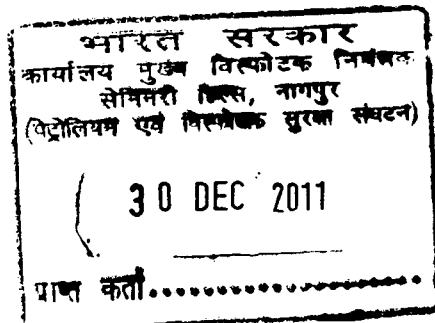 भारत सरकार
कार्यालय मुख्य विस्फोटक नियंत्रक
सेमिनरी हिल्स, नागपुर
(पेट्रोलियम एवं विस्फोटक सुरक्षा संघटन)
30 DEC 2011
प्राप्त कर्ता....................